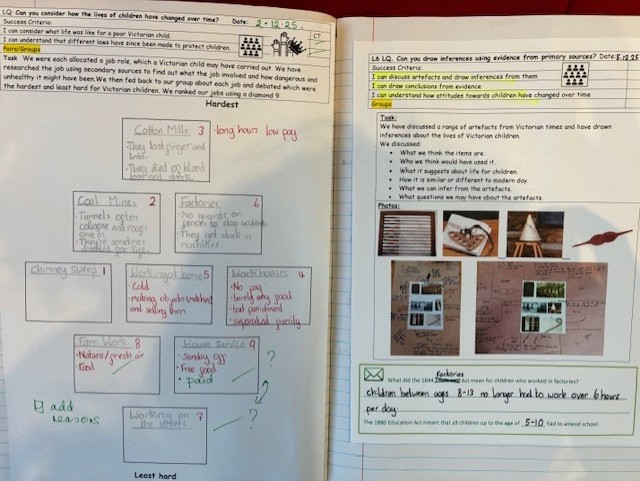 LQ: Can you consider how the lives of children have changed over time? Date: 2.12.25
Success Criteria:
CT
I can consider what life was like for a poor Victorian child.
I can understand that different laws have since been made to protect children.
Pairs/Groups
Task We were each allocated a job role, which a Victorian child may have carried out. We have
researched the job using secondary sources to find out what the job involved and how dangerous and
unhealthy it might have been. We then fed back to our group about each job and debated which were
the hardest and least hard for Victorian children. We ranked our jobs using a diamond 9.
Hardest
Cotton Mills 3
•long hours low pay
•They lost finger and
limbs.
•They died of blood
loss and shock.
Coal Mines 2
•Tunnels often
collapse and roofs
cave in.
•They're sometimes
Factories 6
•No guards or
fences to stop accidents
•They get stuck in
machines
Chimney Sweep 1
Working at home 5
•Cold
•making objects (matches)
and selling them
Workhouses 4
•No pay
•bad punishment
•separated family
Farm Work 8
•Nature/fresh air
Food
House Service 9
•Sunday off
•Free food
•paid
?
add
reasons
Working on 7
the streets
?
Least hard
L6 LQ. Can you draw inferences using evidence from primary sources? Date: 5.12.25
Success Criteria:
I can discuss artefacts and draw inferences from them
I can draw conclusions from evidence
I can understand how attitudes towards children have changed over time
Groups
Task:
We have discussed a range of artefacts from Victorian times and have drawn
inferences about the lives of Victorian children.
We discussed:
• What we think the items are.
• Who we think would have used it.
• What it suggests about life for children.
• How it is similar or different to modern day.
• What we can infer from the artefacts.
• What questions we may have about the artefacts.
Photos:
What did the 1844 Factories Act mean for children who worked in factories?
children between ages 8-13 no longer had to work over 6 hours
per day.
The 1880 Education Act meant that all children up to the age of 5-10 had to attend school.